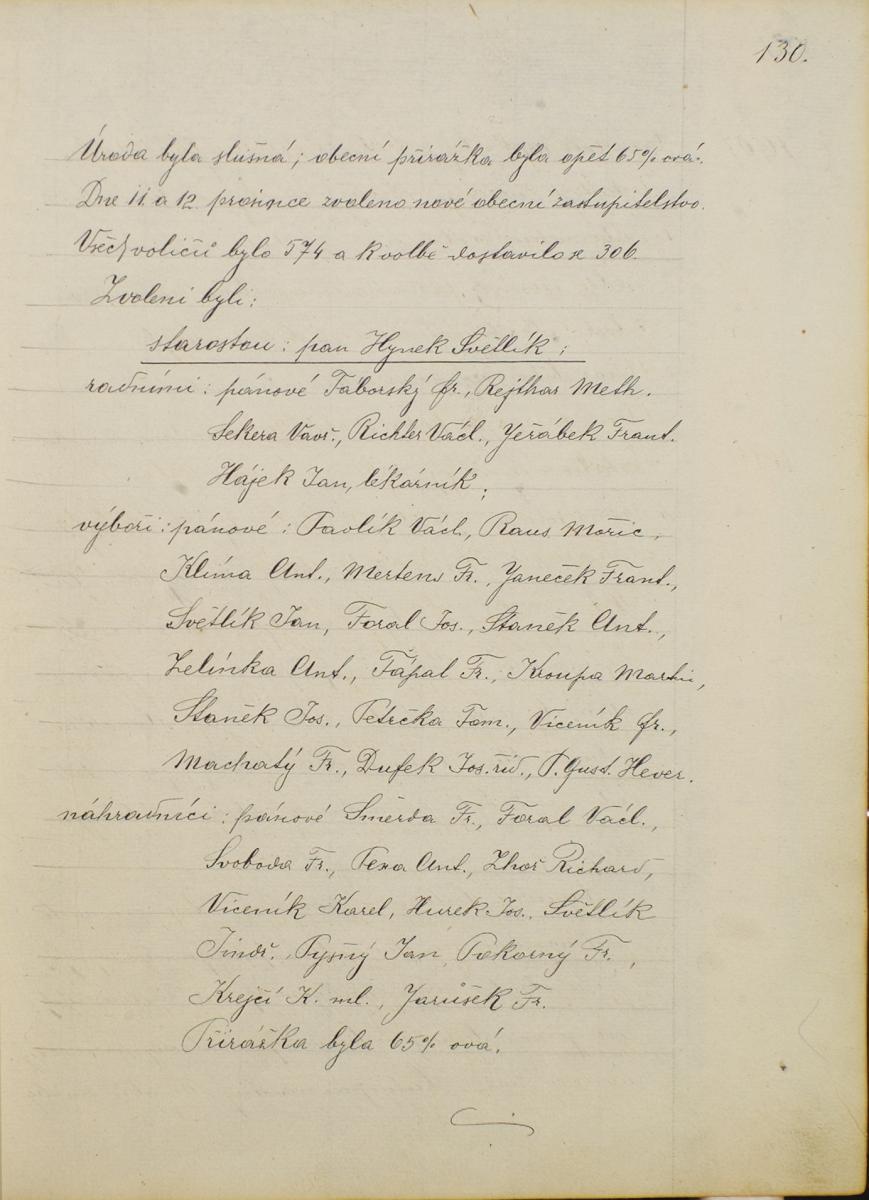 130.
Úroda byla slušná; obecní přirážka byla opět 65% ová.
Dne 11. a 12. prosince zvoleno nové obecní zastupitelstvo.
Všech voličů bylo 574 a k volbě dostavilo se 306.
Zvoleni byli:
starostou: pan Hynek Světlík;
radními: pánové Táborský fr., Rejthar Meth.
Sekera Vavř., Richter Václ., Jeřábek Frant.
Hájek Jan, lékárník;
výboři: pánové: Pavlík Václ., Raus Mořic,
Klíma Ant., Mertens Fr., Janeček Frant.,
Světlík Jan, Foral Jos., Staněk Ant.,
Zelinka Ant., Ťápal Fr., Kroupa Martin,
Staněk Jos., Petrčka Tom., Víceník fr.,
Machatý Fr., Dufek Jos. říd., P. Gust. Hever.
náhradníci: pánové Směrda Fr., Foral Václ.,
Svoboda Fr., Pexa Ant., Zhoř Richard,
Víceník Karel, Hurek Jos., Světlík
Jindř., Pyšný Jan, Pokorný Fr.,
Krejčí K. ml., Jarůšek Fr.
Přirážka byla 65% ová.